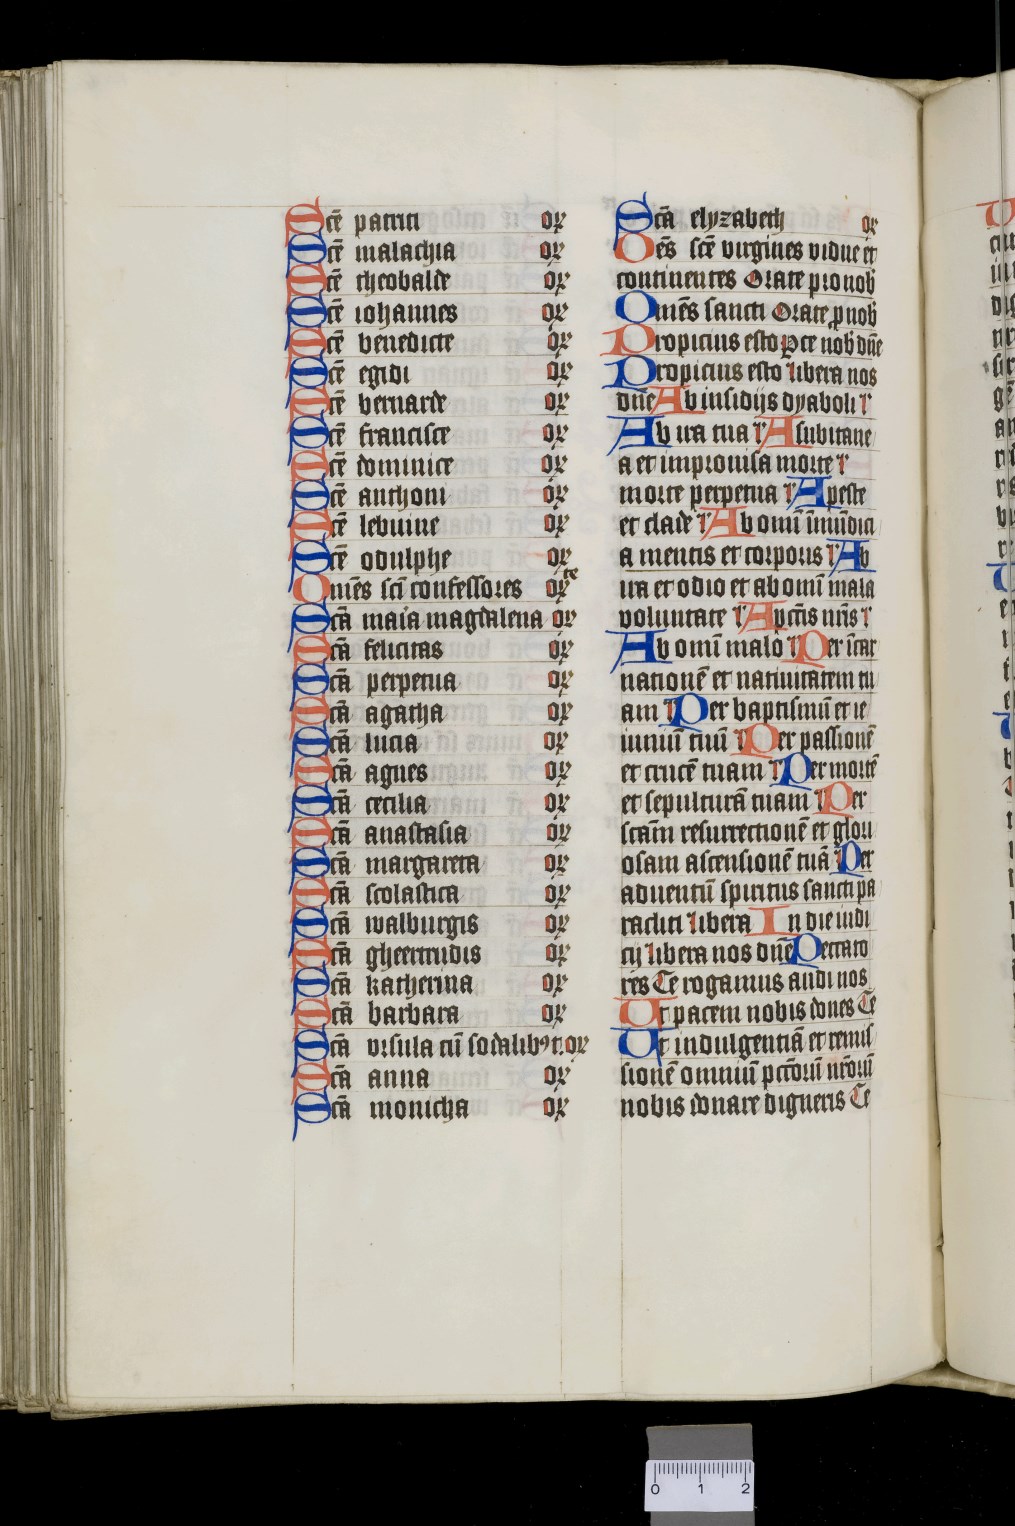 Scē patrici oꝝ
Scē malachia oꝝ
Scē theobalde oꝝ
Scē iohannes oꝝ
Scē benedicte oꝝ
Scē egidi oꝝ
Scē bernarde oꝝ
Scē francisce oꝝ
Scē dominice oꝝ
Scē anthoni oꝝ
Scē lebuine oꝝ
Scē odulphe oꝝ
Omēs sci confessores oꝝte
Scā maia magdalena oꝝ
Scā felicitas oꝝ
Scā perpetua oꝝ
Scā agatha oꝝ
Scā lucia oꝝ
Scā agnes oꝝ
Scā cecilia oꝝ
Scā anastasia oꝝ
Scā margareta oꝝ
Scā scolastica oꝝ
Scā walburgis oꝝ
Scā gheertrudis oꝝ
Scā katherina oꝝ
Scā barbara oꝝ
Scā vrsula cū sodalibꝰ t. oꝝ
Scā anna oꝝ
Scā monicha oꝝ
Scā elyzabeth oꝝ
Oēs scē virgines vidue et
continentes Orate pro nob
Omēs sancti Orate ꝓ nob
Propicius esto Pce nob dn̄e
Propicius esto libera nos
dn̄e Ab insidijs dyaboli l
Ab ira tua l A subitane
a et improuisa morte l
morte perpetua l A peste
et clade l Ab omī īmūdici
a mentis et corporis l Ab
ira et odio et ab omī mala
voluntate l A pctīs nr̄is l
Ab omī malo l Per īcar
nationē et natiuitatem tu
am l Per baptismū et ie
iuniū tuū l Per passionē
et crucē tuam l Per mortē
et sepulturā tuam l Per
scām resurrectionē et glori
osam ascensionē tuā l Per
aduentū spiritus sancti pa
racliti libera In die iudi
cij libera nos dn̄e Peccato
res Te rogamus audi nos
Ut pacem nobis dones Te
Ut indulgentiā et remis
sionē omniū pctōrū nr̄orū
nobis donare digneris Te
0 1 2